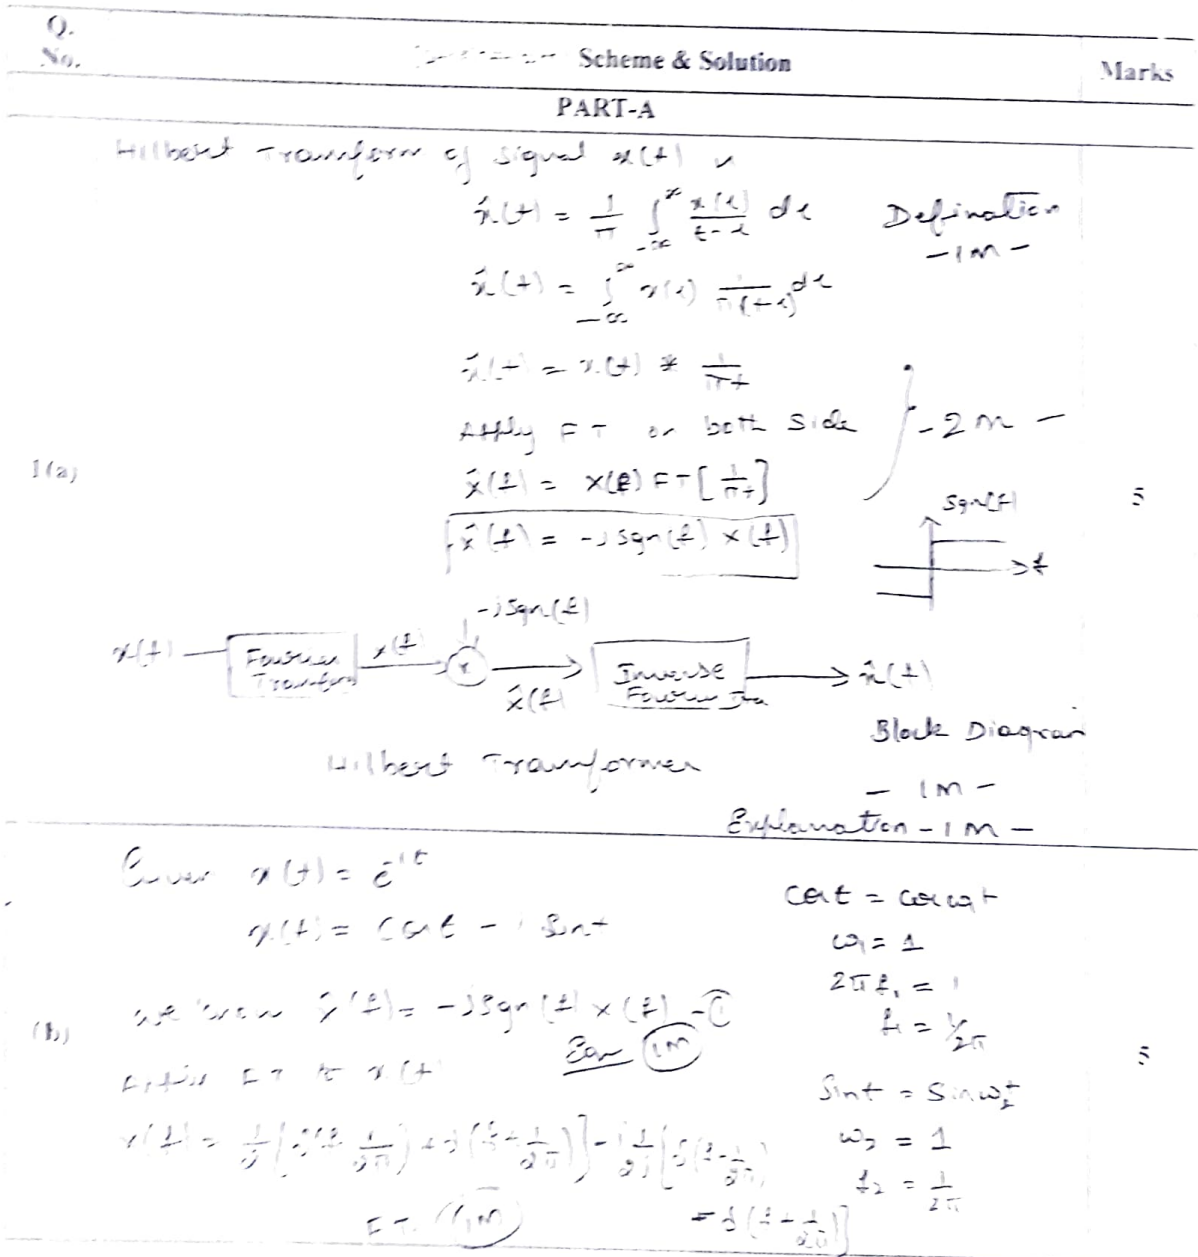 Q. No.
Scheme & Solution
Marks
PART-A
Hilbert Transform of signal x(t) is
x̂(t) = 1/π ∫_{-∞}^{∞} x(τ)/(t-τ) dτ
Defination
- 1M -
x̂(t) = ∫_{-∞}^{∞} x(τ) 1/(π(t-τ)) dτ
x̂(t) = x(t) * 1/(πt)
Apply FT on both side
- 2M -
1(a)
X̂(f) = X(f) FT[1/(πt)]
5
X̂(f) = -j sgn(f) X(f)
sgn(f)
f
-j sgn(f)
x(t)
Fourier Transform
X(f)
x
X̂(f)
Inverse Fourier Tra
x̂(t)
Block Diagram
- 1M -
Hilbert Transformer
Explanation - 1M -
x(t) = e^{-jt}
x(t) = cost - j sint
cost = cosω₁t
ω₁ = 1
2πf₁ = 1
f₁ = 1/2π
we know X̂(f) = -j sgn(f) X(f) - ①
Eqn (1M)
(b)
5
FT to x(t)
sint = sinω₂t
ω₂ = 1
f₂ = 1/2π
X(f) = 1/2 [δ(f - 1/2π) + δ(f + 1/2π)] - j 1/2j [δ(f - 1/2π)
- δ(f + 1/2π)]
FT. (1M)